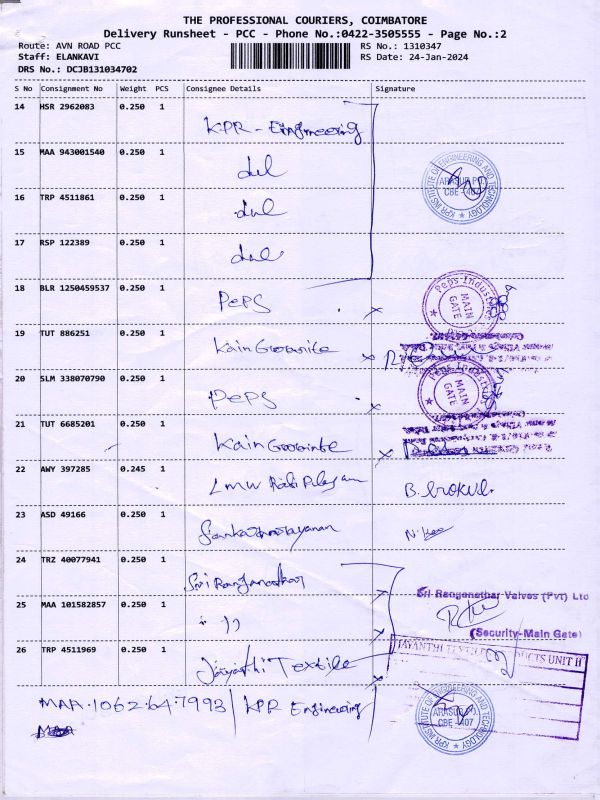 THE PROFESSIONAL COURIERS, COIMBATORE
Delivery Runsheet - PCC - Phone No.:0422-3505555 - Page No.:2
Route: AVN ROAD PCC
RS No.: 1310347
Staff: ELANKAVI
RS Date: 24-Jan-2024
DRS No.: DCJB131034702
S No Consignment No Weight PCS Consignee Details Signature
14 HSR 2962083 0.250 1
KPR - Engineering
15 MAA 943001540 0.250 1
KPR INSTITUTE OF ENGINEERING AND TECHNOLOGY
ARASUR PO
CBE - 407
16 TRP 4511861 0.250 1
17 RSP 122389 0.250 1
18 BLR 1250459537 0.250 1
Peps
Peps Industries
MAIN GATE
19 TUT 886251 0.250 1
20 SLM 338070790 0.250 1
Peps
Peps Industries
MAIN GATE
21 TUT 6685201 0.250 1
22 AWY 397285 0.245 1
LMW
23 ASD 49166 0.250 1
24 TRZ 40077941 0.250 1
Sri Ranganathar
Sri Ranganathar Valves (Pvt) Ltd
25 MAA 101582857 0.250 1
(Security-Main Gate)
26 TRP 4511969 0.250 1
Jayanthi Textile
MAA.1062647993 | KPR Engineering
KPR INSTITUTE OF ENGINEERING AND TECHNOLOGY
ARASUR PO
CBE - 407